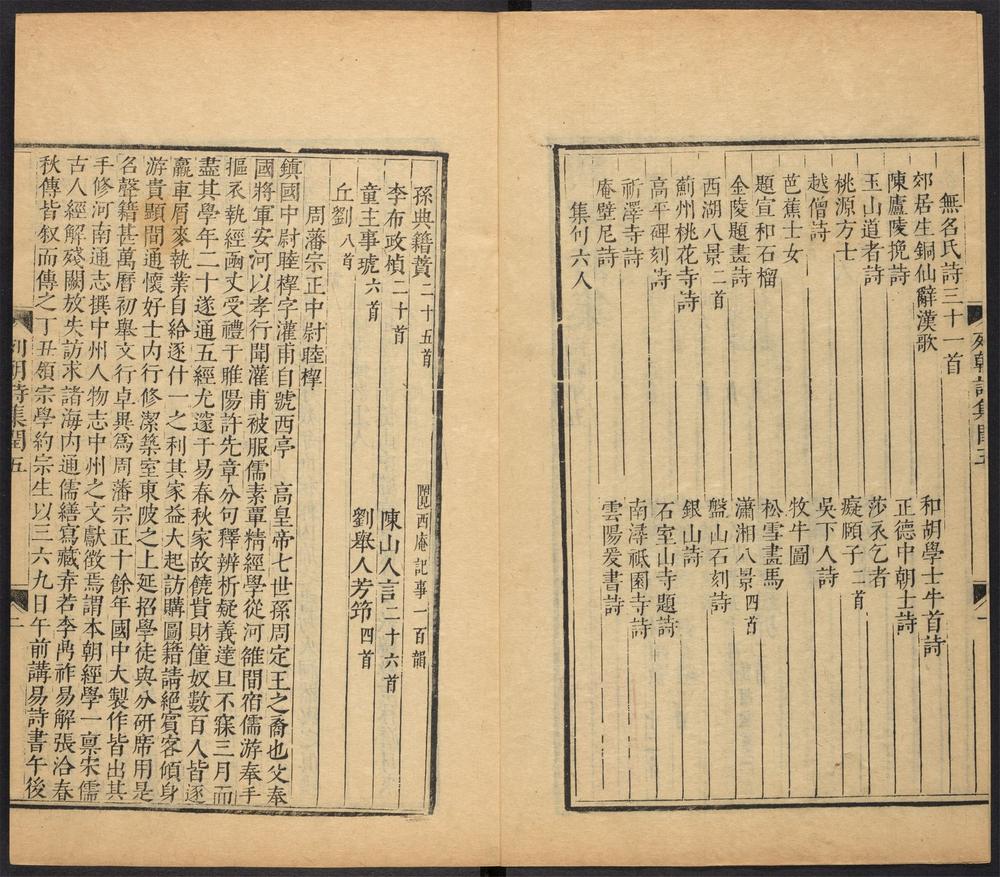 無名氏詩三十一首
郊居生銅仙辭漢歌
和胡學士牛首詩
陳廬陵挽詩
正德中朝士詩
玉山道者詩
莎衣乞者
桃源方士
癡頎子二首
越僧詩
吳下人詩
芭蕉士女
牧牛圖
題宣和石榴
松雪畫馬
金陵題畫詩
瀟湘八景四首
西湖八景二首
盤山石刻詩
薊州桃花寺詩
銀山詩
高平碑刻詩
石室山寺題詩
祈澤寺詩
南潯祇園寺詩
庵壁尼詩
雲陽爰書詩
集句六人
孫典籍蕡二十五首
附見西庵記事一百韻
李布政楨二十首
陳山人言二十六首
童主事琥六首
劉舉人芳節四首
丘劉八首
周藩宗正中尉睦㮮
鎮國中尉睦㮮字灌甫自號西亭 高皇帝七世孫周定王之裔也父奉
國將軍安河以孝行聞灌甫被服儒素覃精經學從河雒間宿儒游奉手
摳衣執經函丈受禮于睢陽許先章分句釋辨析疑義達旦不寐三月而
盡其學年二十遂通五經尤邃于易春秋家故饒貲財僮奴數百人皆逐
羸車屑麥執業自給逐什一之利其家益大起訪購圖籍請絕賓客傾身
游貴顯問通懷好士內行修潔築室東陂之上延招學徒與分研席用是
名聲籍甚萬曆初舉文行卓異爲周藩宗正十餘年國中大製作皆出其
手修河南通志撰中州人物志中州之文獻徵焉謂本朝經學一稟宋儒
古人經解殘闕放失訪求諸海內通儒繕寫藏弆若李鼎祚易解張洽春
秋傳皆叙而傳之丁丑領宗學約宗生以三六九日午前講易詩書午後
列朝詩集閏五
一
列朝詩集閏五
二